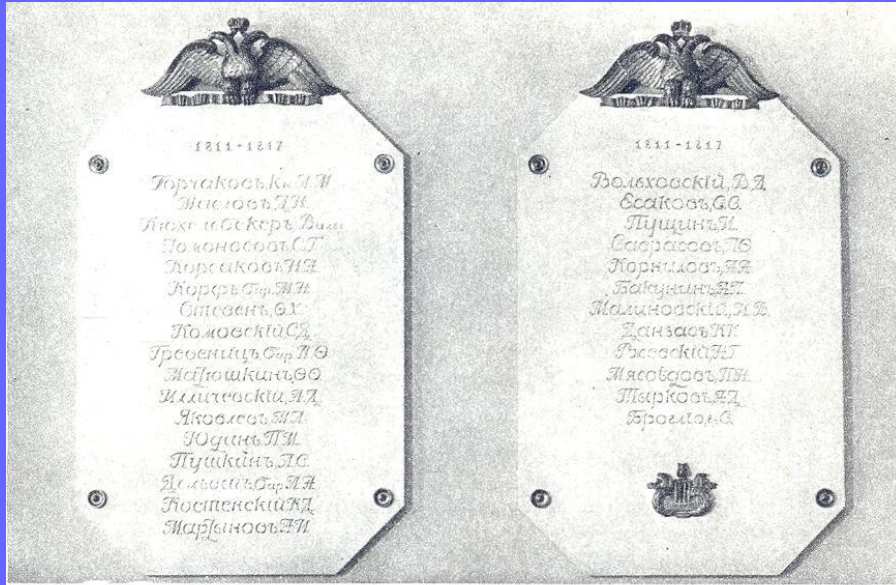 1811-1817
Горчаковъ, Кн. А. М
Масловъ, Д. Н.
Кюхельбекеръ, Вильг.
Ломоносовъ, С. Г.
Корсаковъ, Н. А.
Корфъ, бар. М. А.
Стевенъ, Ѳ. Х
Комовскій, С. Д.
Гревеницъ, бар. П. Ѳ
Матюшкинъ, Ѳ. Ѳ.
Илличевскій, А. Д.
Яковлевъ, М. Л.
Юдинъ, П. М.
Пушкинъ, А. С.
Дельвигъ, бар. А. А.
Костенскій, К. Д.
Мартыновъ, А. И.
1811-1817
Вольховскій, В. Д.
Есаковъ, С. С.
Пущинъ, И.
Саврасовъ, П. Ѳ.
Корниловъ, А. А.
Бакунинъ, А. П.
Малиновскій, И. В.
Данзасъ, К. К.
Ржевскій, Н. Г.
Мясоѣдовъ, П. Н.
Тырковъ, А. Д.
Брогліо, С.